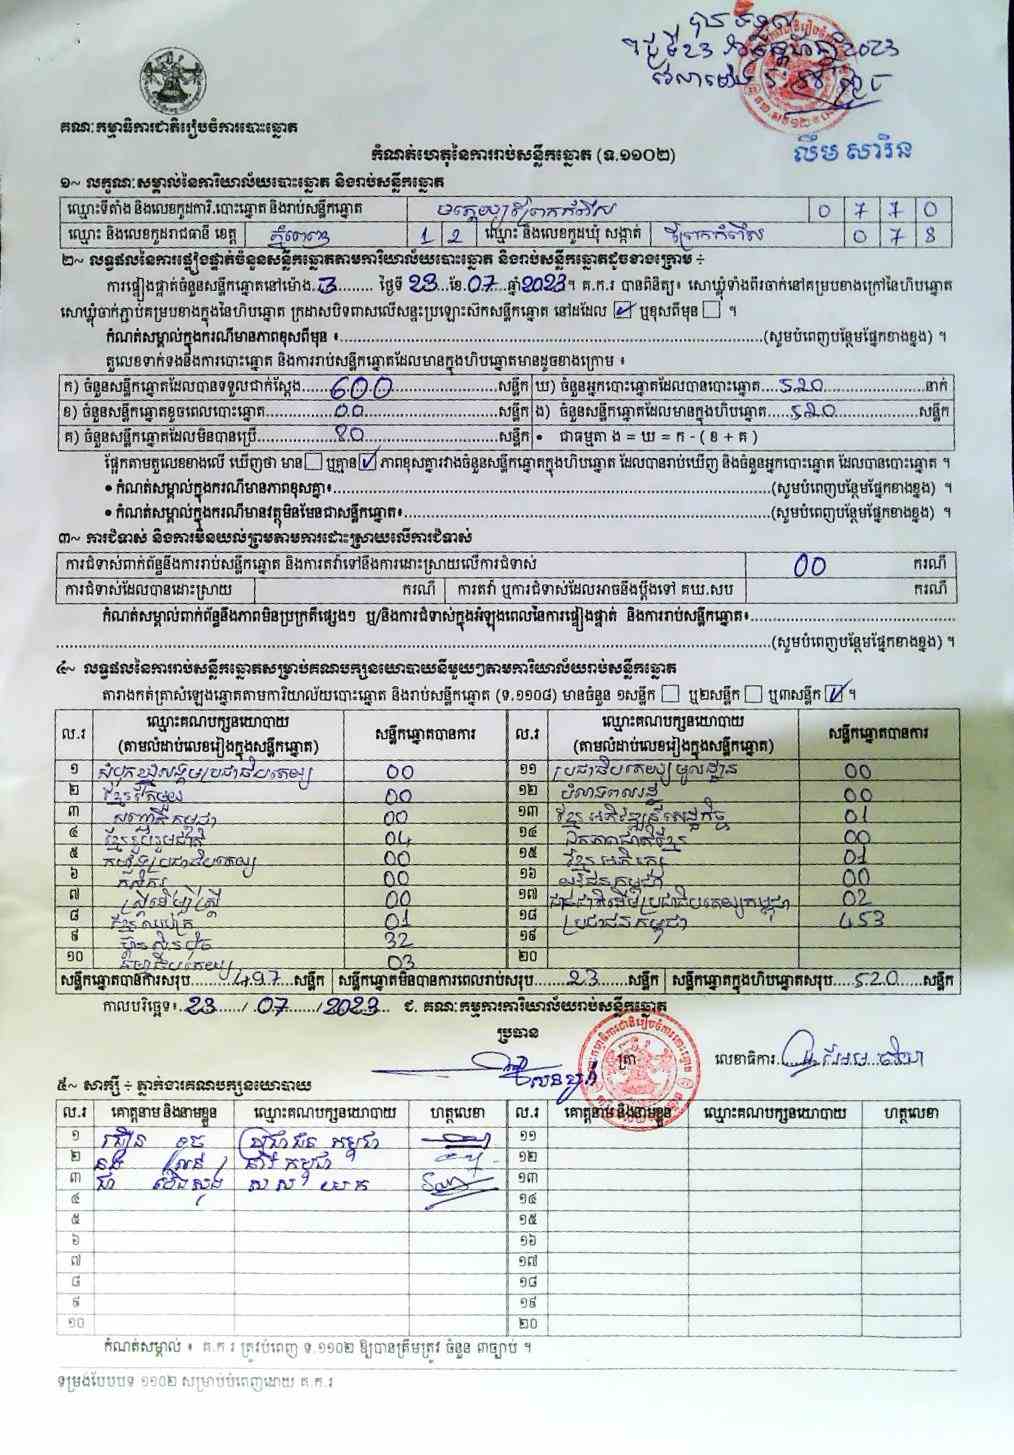 បានទទួល
ថ្ងៃទី23 ខែកក្កដា ឆ្នាំ2023
វេលាម៉ោង
គណៈកម្មាធិការជាតិរៀបចំការបោះឆ្នោត
លឹម សារិន
កំណត់ហេតុនៃការរាប់សន្លឹកឆ្នោត (ទ.១១០២)
១~ លក្ខណៈសម្គាល់នៃការិយាល័យបោះឆ្នោត និងរាប់សន្លឹកឆ្នោត
ឈ្មោះទីតាំង និងលេខកូដការិ.បោះឆ្នោត និងរាប់សន្លឹកឆ្នោត មត្តេយ្យព្រែកកំពឹស 0 7 7 0
ឈ្មោះ និងលេខកូដរាជធានី ខេត្ត ភ្នំពេញ 1 2 ឈ្មោះ និងលេខកូដឃុំ សង្កាត់ ព្រែកកំពឹស 0 7 8
២~ លទ្ធផលនៃការផ្ទៀងផ្ទាត់ចំនួនសន្លឹកឆ្នោតតាមការិយាល័យបោះឆ្នោត និងរាប់សន្លឹកឆ្នោតដូចខាងក្រោម ÷
ការផ្ទៀងផ្ទាត់ចំនួនសន្លឹកឆ្នោតនៅម៉ោង.3......... ថ្ងៃទី 23 ខែ.07 ឆ្នាំ2023។ គ.ក.រ បានពិនិត្យ៖ សោឃ្លុំទាំងពីរចាក់នៅគម្របខាងក្រៅនៃហិបឆ្នោត
សោឃ្លុំចាក់ភ្ជាប់គម្របខាងក្នុងនៃហិបឆ្នោត ក្រដាសបិទពាសលើសន្ទះប្រឡោះស៊កសន្លឹកឆ្នោត នៅដដែល ☑ ឬខុសពីមុន ☐ ។
កំណត់សម្គាល់ក្នុងករណីមានភាពខុសពីមុន ៖ (សូមបំពេញបន្ថែមផ្នែកខាងខ្នង) ។
តួលេខទាក់ទងនឹងការបោះឆ្នោត និងការរាប់សន្លឹកឆ្នោតដែលមានក្នុងហិបឆ្នោតមានដូចខាងក្រោម ៖
ក) ចំនួនសន្លឹកឆ្នោតដែលបានទទួលជាក់ស្តែង 600 សន្លឹក ឃ) ចំនួនអ្នកបោះឆ្នោតដែលបានបោះឆ្នោត 520 នាក់
ខ) ចំនួនសន្លឹកឆ្នោតខូចពេលបោះឆ្នោត 00 សន្លឹក ង) ចំនួនសន្លឹកឆ្នោតដែលមានក្នុងហិបឆ្នោត 520 សន្លឹក
គ) ចំនួនសន្លឹកឆ្នោតដែលមិនបានប្រើ 80 សន្លឹក • ជាធម្មតា ង = ឃ = ក - ( ខ + គ )
ផ្អែកតាមតួលេខខាងលើ ឃើញថា មាន ☐ ឬគ្មាន ☑ ភាពខុសគ្នារវាងចំនួនសន្លឹកឆ្នោតក្នុងហិបឆ្នោត ដែលបានរាប់ឃើញ និងចំនួនអ្នកបោះឆ្នោត ដែលបានបោះឆ្នោត ។
• កំណត់សម្គាល់ក្នុងករណីមានភាពខុសគ្នា៖ (សូមបំពេញបន្ថែមផ្នែកខាងខ្នង) ។
• កំណត់សម្គាល់ក្នុងករណីមានវត្ថុមិនមែនជាសន្លឹកឆ្នោត៖ (សូមបំពេញបន្ថែមផ្នែកខាងខ្នង) ។
៣~ ការជំទាស់ និងការមិនយល់ព្រមតាមការដោះស្រាយលើការជំទាស់
ការជំទាស់ពាក់ព័ន្ធនឹងការរាប់សន្លឹកឆ្នោត និងការតវ៉ាទៅនឹងការដោះស្រាយលើការជំទាស់ 00 ករណី
ការជំទាស់ដែលបានដោះស្រាយ ករណី ការតវ៉ា ឬការជំទាស់ដែលអាចនឹងប្តឹងទៅ គឃ.សប ករណី
កំណត់សម្គាល់ពាក់ព័ន្ធនឹងភាពមិនប្រក្រតីផ្សេងៗ ឬ/និងការជំទាស់ក្នុងអំឡុងពេលនៃការផ្ទៀងផ្ទាត់ និងការរាប់សន្លឹកឆ្នោត៖
(សូមបំពេញបន្ថែមផ្នែកខាងខ្នង) ។
៤~ លទ្ធផលនៃការរាប់សន្លឹកឆ្នោតសម្រាប់គណបក្សនយោបាយនីមួយៗតាមការិយាល័យរាប់សន្លឹកឆ្នោត
តារាងកត់ត្រាសំឡេងឆ្នោតតាមការិយាល័យបោះឆ្នោត និងរាប់សន្លឹកឆ្នោត (ទ.១១០៨) មានចំនួន ១សន្លឹក ☐ ឬ២សន្លឹក ☐ ឬ៣សន្លឹក ☑ ។
ល.រ ឈ្មោះគណបក្សនយោបាយ (តាមលំដាប់លេខរៀងក្នុងសន្លឹកឆ្នោត) សន្លឹកឆ្នោតបានការ ល.រ ឈ្មោះគណបក្សនយោបាយ (តាមលំដាប់លេខរៀងក្នុងសន្លឹកឆ្នោត) សន្លឹកឆ្នោតបានការ
១ សំបុកឃ្មុំសង្គមប្រជាធិបតេយ្យ 00 ១១ ប្រជាធិបតេយ្យមូលដ្ឋាន 00
២ ខ្មែរតែមួយ 00 ១២ បំលាទពលរដ្ឋ 00
៣ សញ្ជាតិកម្ពុជា 00 ១៣ ខ្មែរអភិវឌ្ឍន៍សេដ្ឋកិច្ច 01
៤ ខ្មែររួបរួមជាតិ 04 ១៤ ឯកភាពជាតិខ្មែរ 00
៥ កម្លាំងប្រជាធិបតេយ្យ 00 ១៥ ខ្មែរអភិរក្ស 01
៦ កសិករ 00 ១៦ យុវជនកម្ពុជា 00
៧ ស្ត្រីដើម្បីស្ត្រី 00 ១៧ ជនជាតិដើមប្រជាធិបតេយ្យកម្ពុជា 02
៨ ខ្មែរឈប់ក្រ 01 ១៨ ប្រជាជនកម្ពុជា 453
៩ ហ៊្វុនស៊ិនប៉ិច 32 ១៩
១០ ធម្មាធិបតេយ្យ 03 ២០
សន្លឹកឆ្នោតបានការសរុប 497 សន្លឹក សន្លឹកឆ្នោតមិនបានការពេលរាប់សរុប 23 សន្លឹក សន្លឹកឆ្នោតក្នុងហិបឆ្នោតសរុប 520 សន្លឹក
កាលបរិច្ឆេទ៖ 23 / 07 / 2023 ជ. គណៈកម្មការការិយាល័យរាប់សន្លឹកឆ្នោត
ប្រធាន
ត្រា លេខាធិការ
៥~ សាក្សី ÷ ភ្នាក់ងារគណបក្សនយោបាយ
ល.រ គោត្តនាម និងនាមខ្លួន ឈ្មោះគណបក្សនយោបាយ ហត្ថលេខា ល.រ គោត្តនាម និងនាមខ្លួន ឈ្មោះគណបក្សនយោបាយ ហត្ថលេខា
១ ប្រជាជន កម្ពុជា ១១
២ កម្ពុជា ១២
៣ ១៣
៤ ១៤
៥ ១៥
៦ ១៦
៧ ១៧
៨ ១៨
៩ ១៩
១០ ២០
កំណត់សម្គាល់ ៖ គ.ក.រ ត្រូវបំពេញ ទ.១១០២ ឱ្យបានត្រឹមត្រូវ ចំនួន ៣ច្បាប់ ។
ទម្រង់បែបបទ ១១០២ សម្រាប់បំពេញដោយ គ.ក.រ